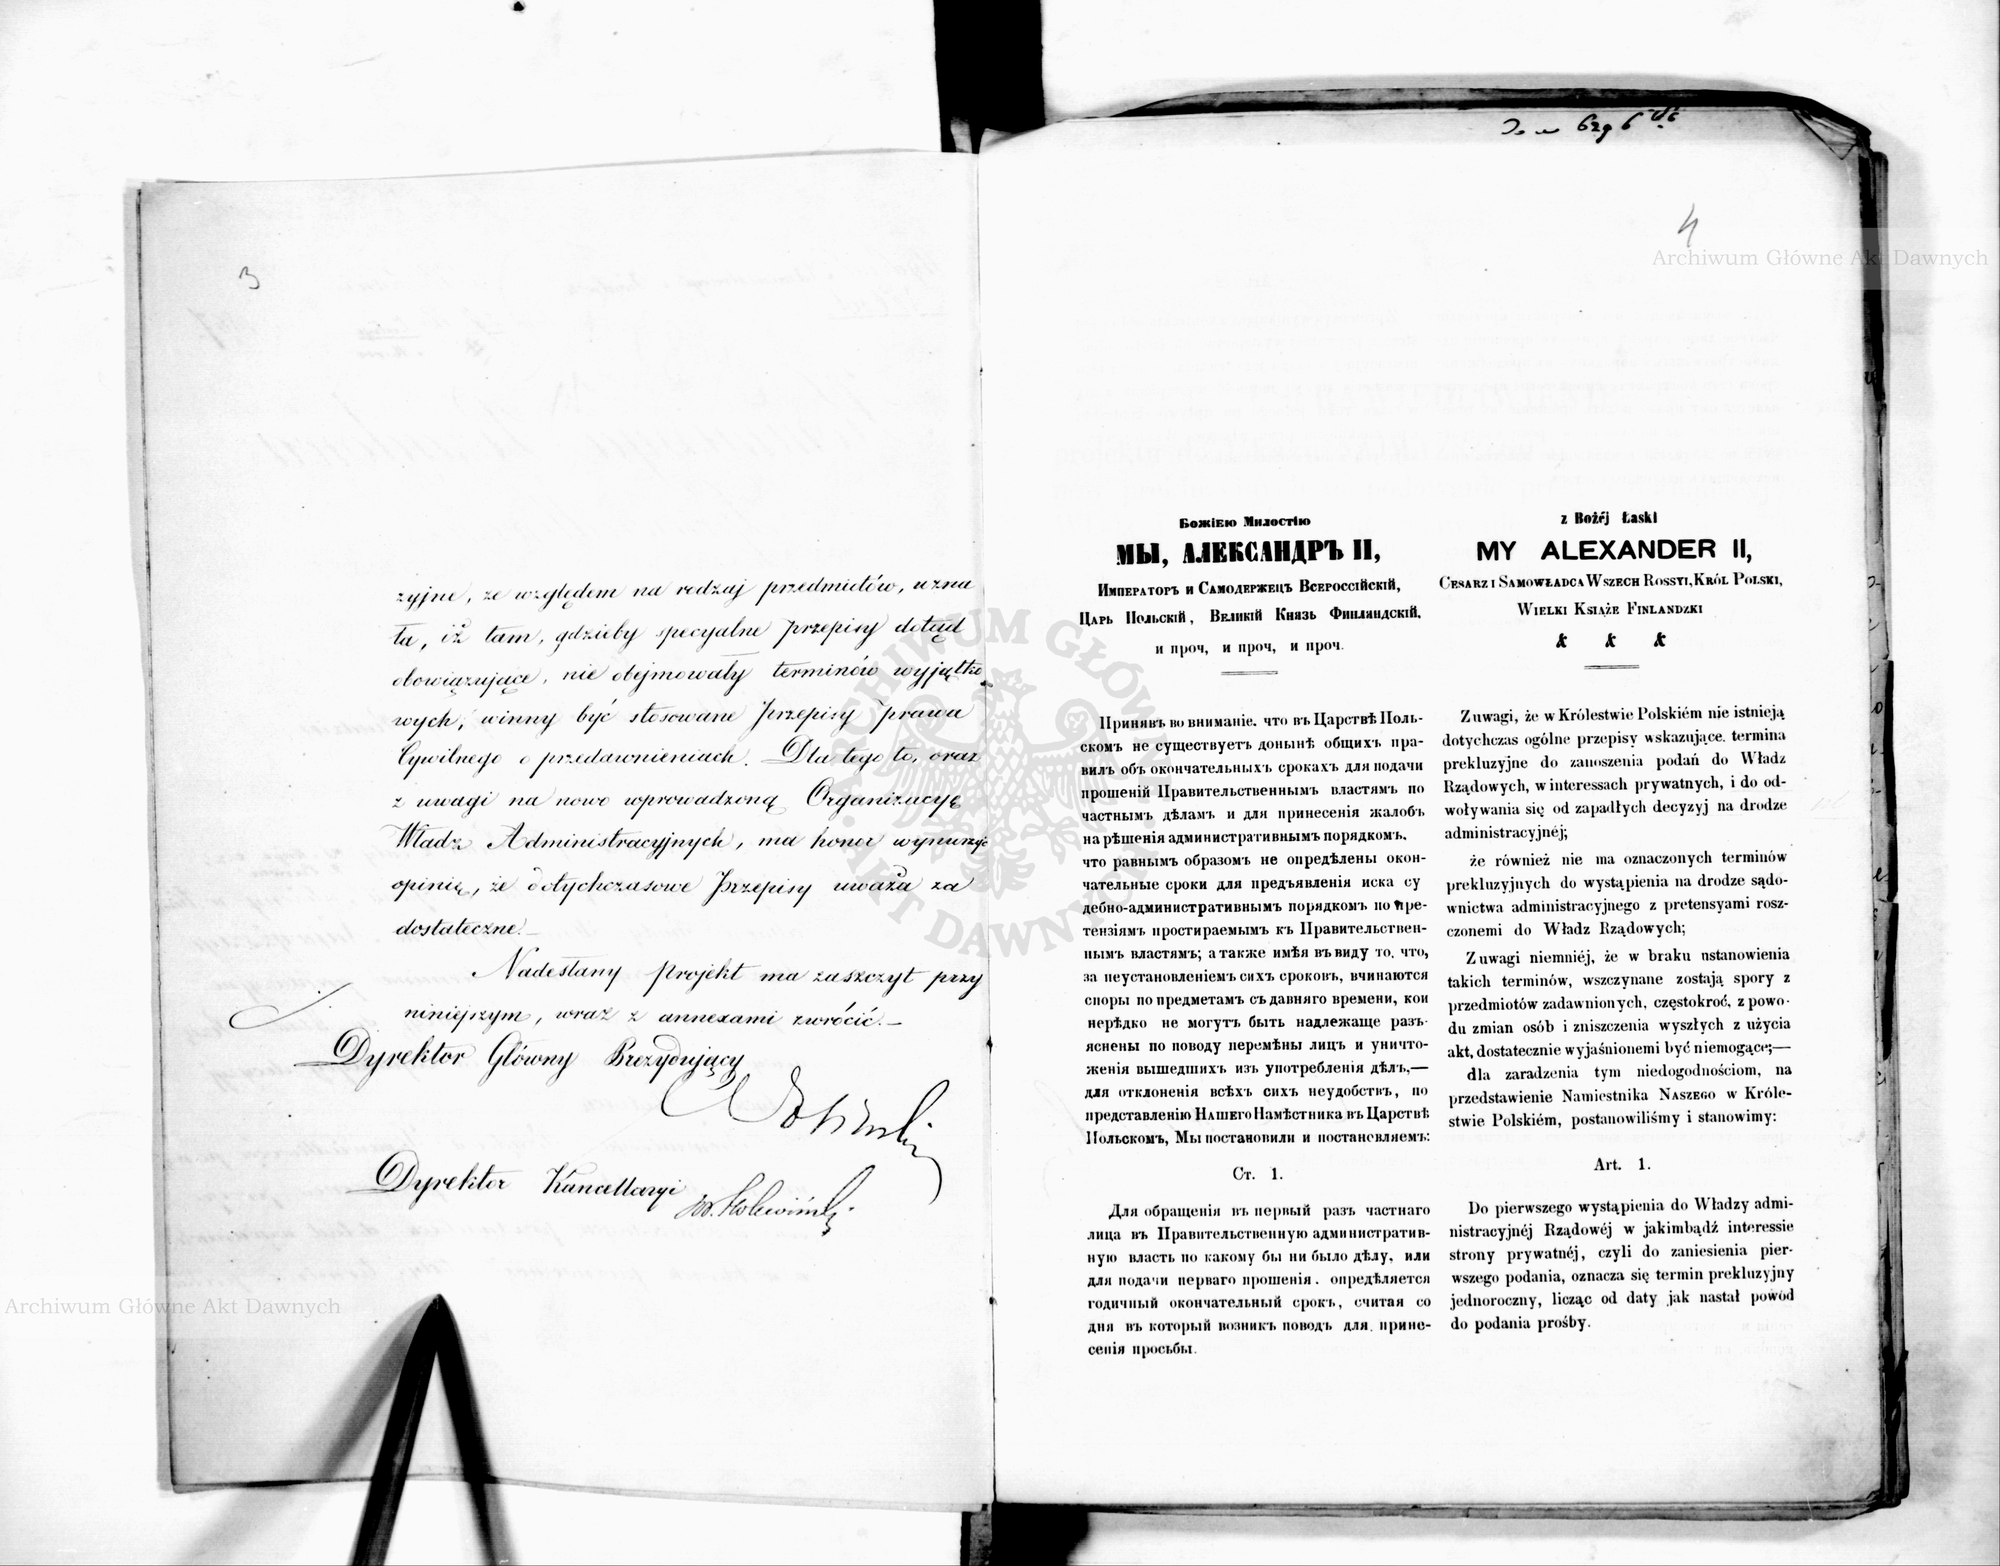 3
zyjne, ze względem na rodzaj przedmiotów, uzna
ta, iż tam, gdzieby specyalne przepisy dotąd
obowiązujące, nie obejmowały terminów wyjątko
wych, winny być stosowane Przepisy prawa
Cywilnego o przedawnieniach. Dla tego to, oraz
z uwagi na nowo wprowadzoną Organizacyę
Władz Administracyjnych, ma honor wynurzyć
opinię, że dotychczasowe Przepisy uważa za
dostateczne.—
Nadesłany projekt ma zaszczyt przy
niniejszym, wraz z annexami zwrócić.—
Dyrektor Główny Prezydujący
Dyrektor Kancellaryi
4
Божіею Милостію
МЫ, АЛЕКСАНДРЪ II,
Императоръ и Самодержецъ Всероссійскій,
Царь Польскій, Великій Князь Финляндскій,
и проч, и проч, и проч.
Принявъ во вниманіе, что въ Царствѣ Поль-
скомъ не существуетъ донынѣ общихъ пра-
вилъ объ окончательныхъ срокахъ для подачи
прошеній Правительственнымъ властямъ по
частнымъ дѣламъ и для принесенія жалобъ
на рѣшенія административнымъ порядкомъ,
что равнымъ образомъ не опредѣлены окон-
чательные сроки для предъявленія иска су
дебно-административнымъ порядкомъ по пре-
тензіямъ простираемымъ къ Правительствен-
нымъ властямъ; а также имѣя въ виду то, что,
за неустановленіемъ сихъ сроковъ, вчинаются
споры по предметамъ съ давняго времени, кои
нерѣдко не могутъ быть надлежаще разъ-
яснены по поводу перемѣны лицъ и уничто-
женія вышедшихъ изъ употребленія дѣлъ,—
для отклоненія всѣхъ сихъ неудобствъ, по
представленію Нашего Намѣстника въ Царствѣ
Польскомъ, Мы постановили и постановляемъ:
Ст. 1.
Для обращенія въ первый разъ частнаго
лица въ Правительственную административ-
ную власть по какому бы ни было дѣлу, или
для подачи перваго прошенія, опредѣляется
годичный окончательный срокъ, считая со
дня въ который возникъ поводъ для прине-
сенія просьбы.
z Bożéj Łaski
MY ALEXANDER II,
Cesarz i Samowładca Wszech Rossyi, Król Polski,
Wielki Książe Finlandzki
& & &
Z uwagi, że w Królestwie Polskiém nie istnieją
dotychczas ogólne przepisy wskazujące, termina
prekluzyjne do zanoszenia podań do Władz
Rządowych, w interessach prywatnych, i do od-
woływania się od zapadłych decyzyj na drodze
administracyjnéj;
że również nie ma oznaczonych terminów
prekluzyjnych do wystąpienia na drodze sądo-
wnictwa administracyjnego z pretensyami rosz-
czonemi do Władz Rządowych;
Z uwagi niemniéj, że w braku ustanowienia
takich terminów, wszczynane zostają spory z
przedmiotów zadawnionych, częstokroć, z powo-
du zmian osób i zniszczenia wyszłych z użycia
akt, dostatecznie wyjaśnionemi być niemogące;—
dla zaradzenia tym niedogodnościom, na
przedstawienie Namiestnika Naszego w Króle-
stwie Polskiém, postanowiliśmy i stanowimy:
Art. 1.
Do pierwszego wystąpienia do Władzy admi-
nistracyjnéj Rządowéj w jakimbądź interessie
strony prywatnéj, czyli do zaniesienia pier-
wszego podania, oznacza się termin prekluzyjny
jednoroczny, licząc od daty jak nastał powód
do podania prośby.
Archiwum Główne Akt Dawnych
Archiwum Główne Akt Dawnych
ARCHIWUM GŁÓWNE AKT DAWNYCH